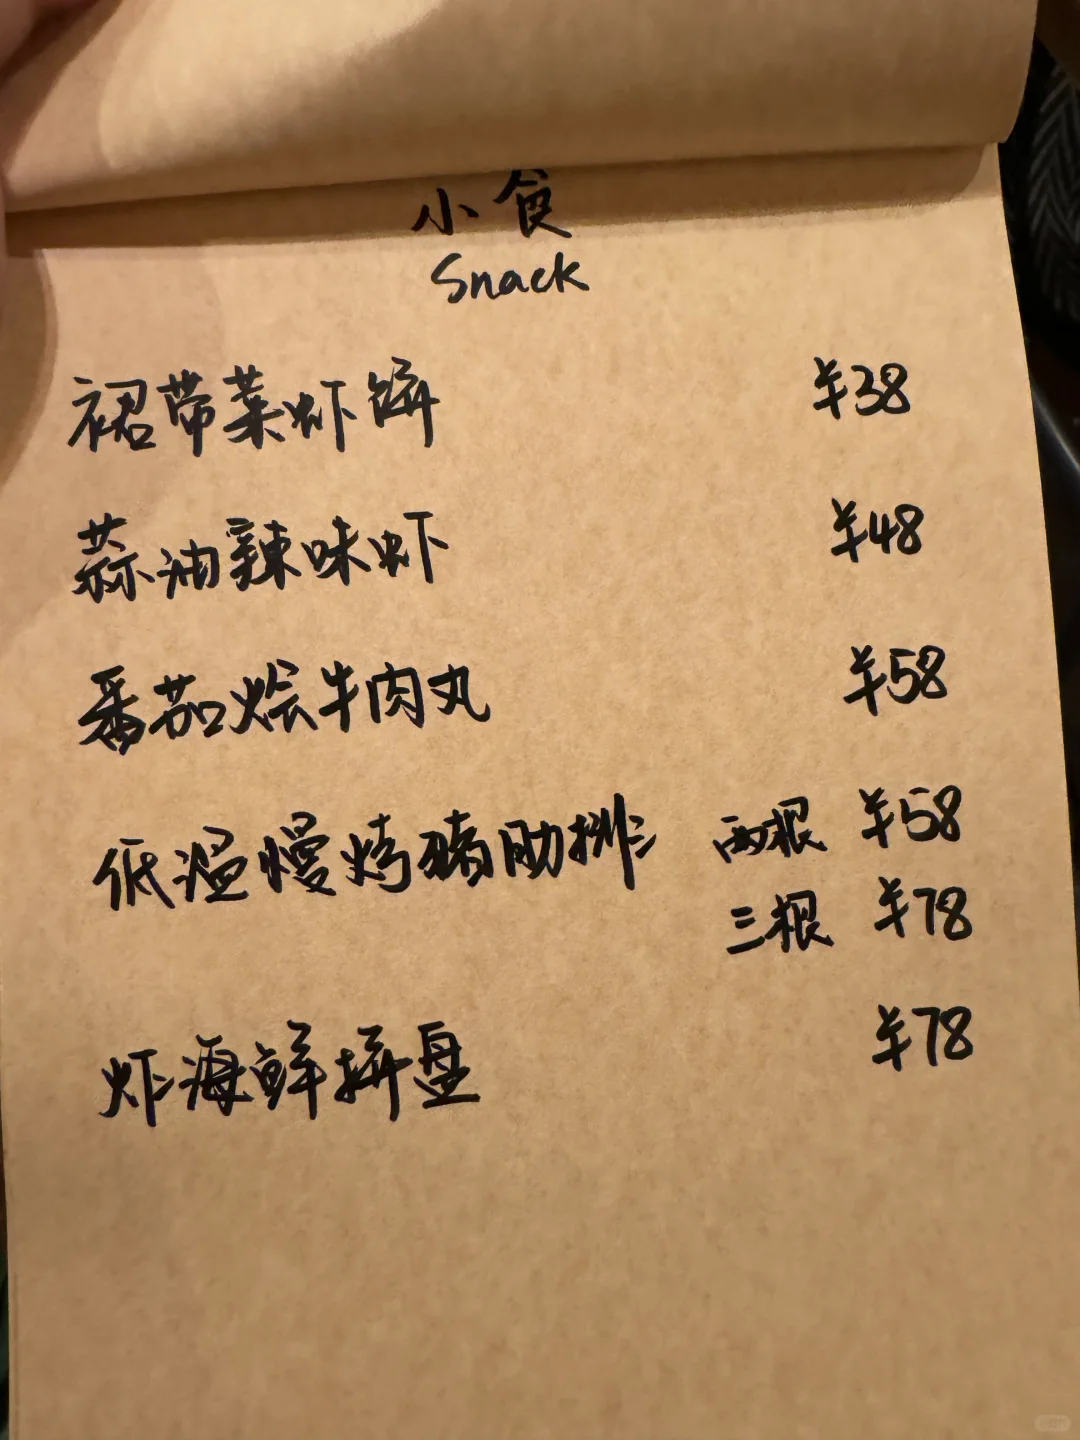 小食
Snack
裙带菜虾饼 ¥38
蒜油辣味虾 ¥48
番茄烩牛肉丸 ¥58
低温慢烤猪肋排 两根 ¥58
三根 ¥78
炸海鲜拼盘 ¥78